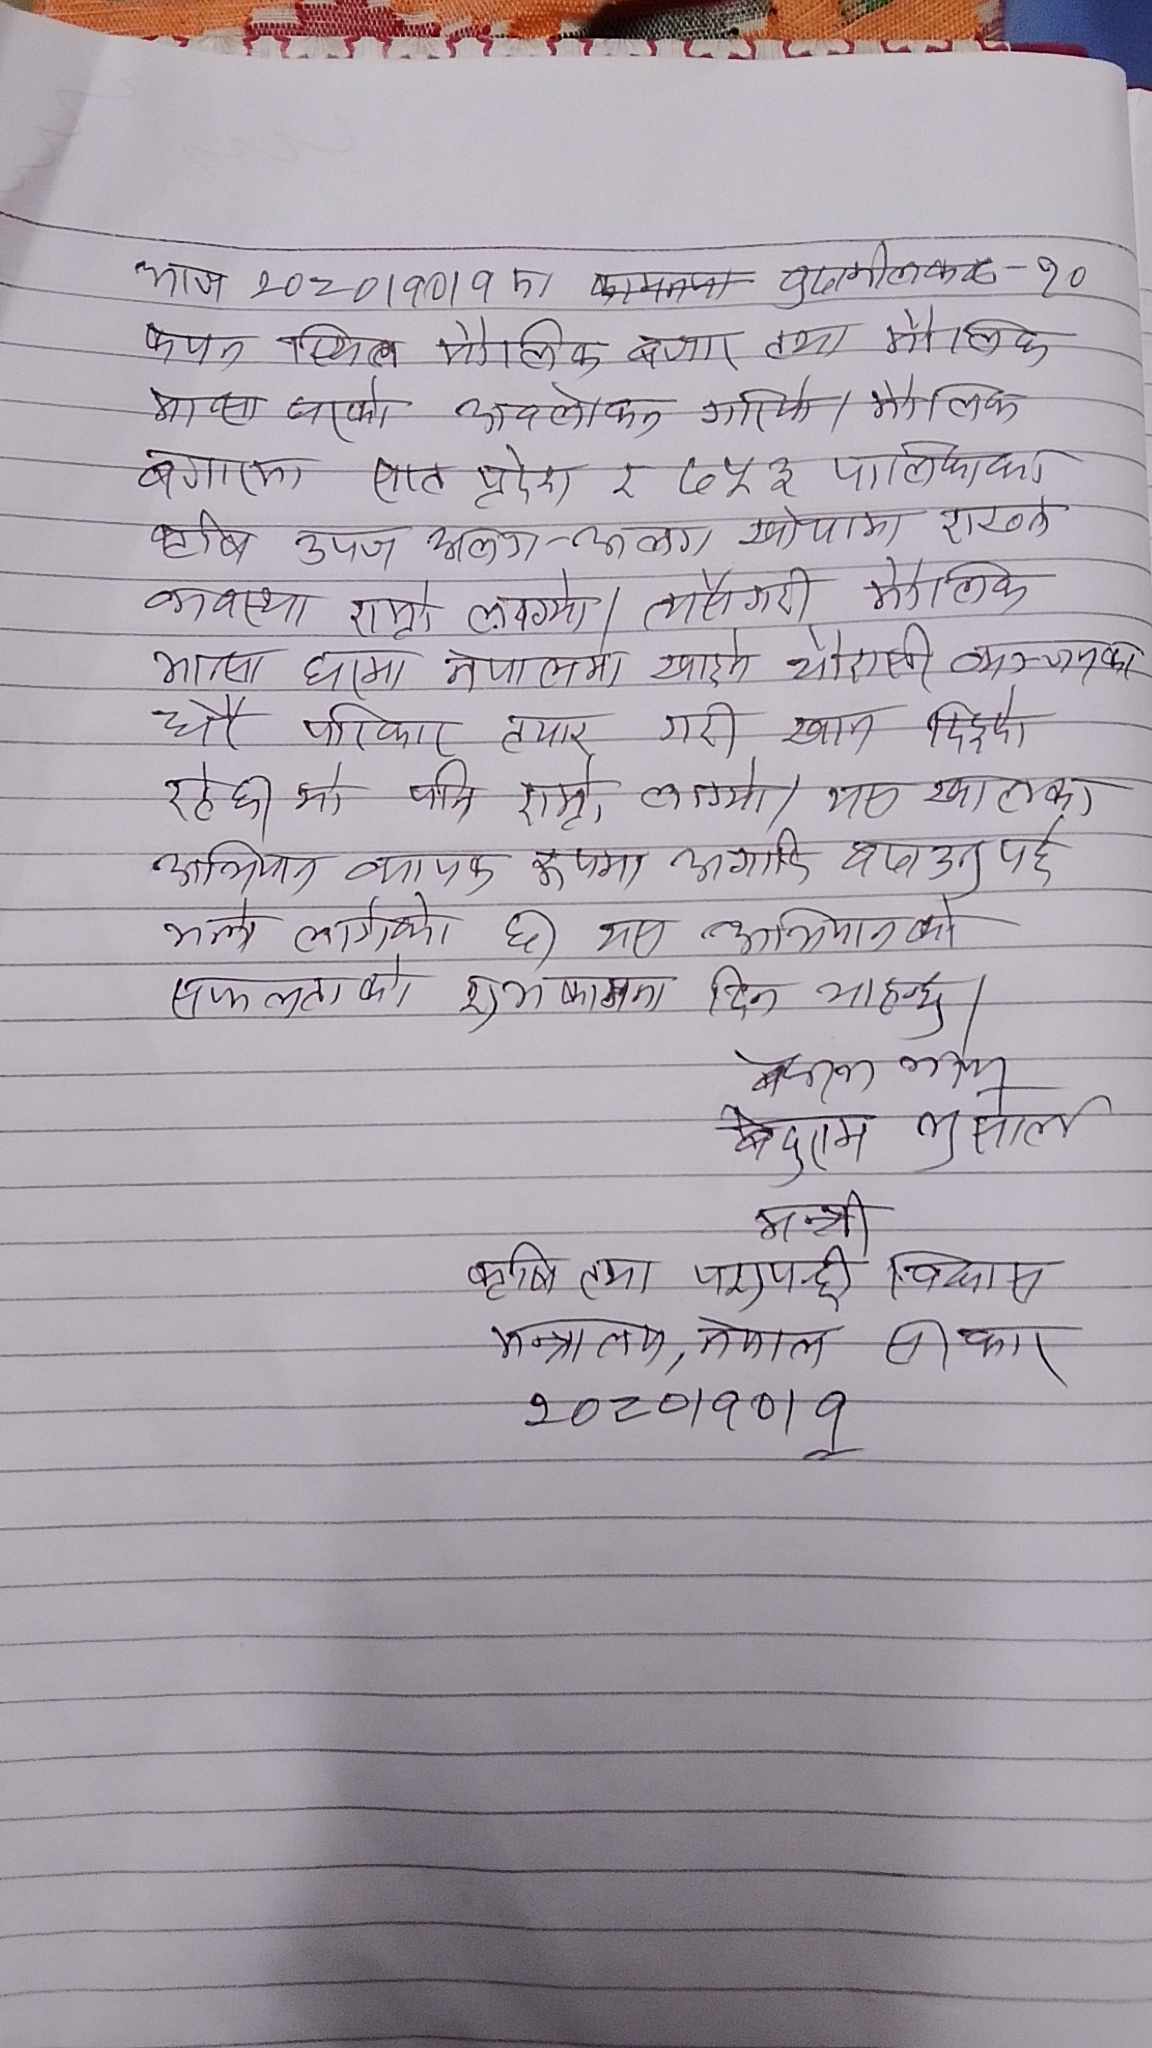 आज २०८०।१०।१ मा बुढानीलकण्ठ-१०
कपन स्थित मौलिक बजार तथा मौलिक
भान्सा घरको अवलोकन गरियो। मौलिक
बजारमा सात प्रदेश र ७५३ पालिकाका
कृषि उपज अलग-अलग खोपामा राख्ने
व्यवस्था राम्रो लाग्यो। त्यसैगरी मौलिक
भान्सा घरमा नेपालमा खाइने चौरासी व्यञ्जनका
धेरै परिकार तयार गरी खान दिइँदो
रहेछ। यो पनि राम्रो लाग्यो। यस खालका
अभियान व्यापक रूपमा अगाडि बढाउनु पर्छ
भन्ने लागेको छ। यस अभियानको
सफलताको शुभकामना दिन चाहन्छु।
बेदुराम भुसाल
मन्त्री
कृषि तथा पशुपन्छी विकास
मन्त्रालय, नेपाल सरकार
२०८०।१०।१